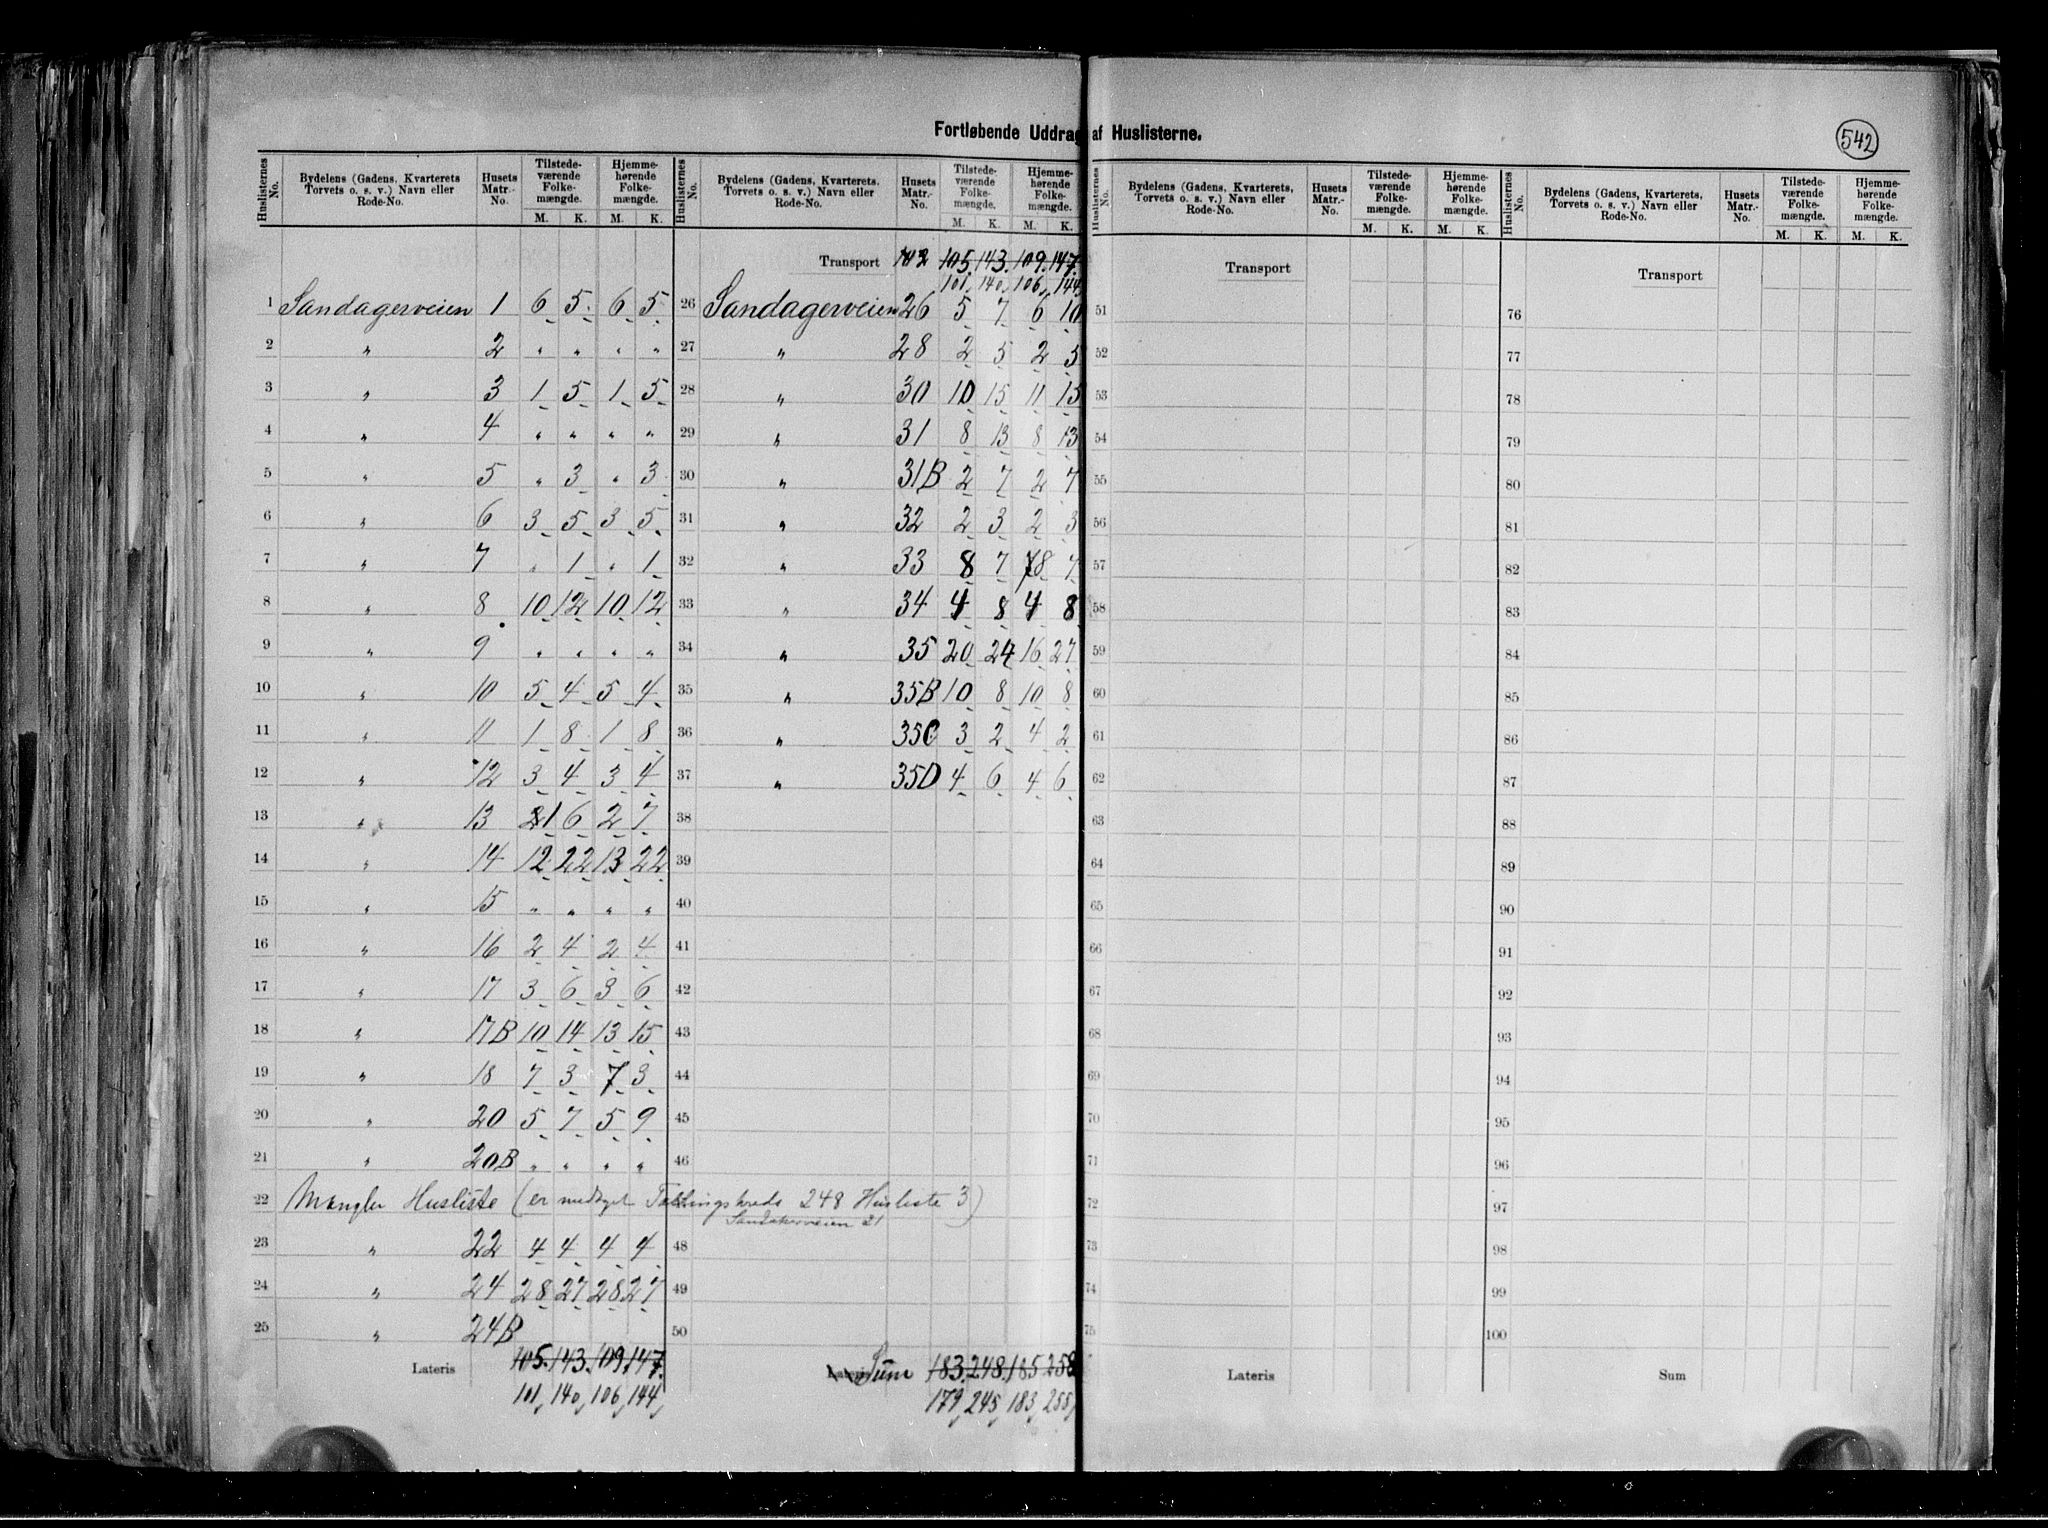 Fortløbende Uddrag af Huslisterne.
542
Huslisternes No. | Bydelens (Gadens, Kvarterets, Torvets o. s. v.) Navn eller Rode-No. | Husets Matr.-No. | Tilstedeværende Folkemængde. M. K. | Hjemmehørende Folkemængde. M. K.
1 Sandagerveien 1 6 5 6 5
2 " 2 " " " "
3 " 3 1 5 1 5
4 " 4 " " " "
5 " 5 " 3 " 3
6 " 6 3 5 3 5
7 " 7 " 1 " 1
8 " 8 10 12 10 12
9 " 9 " " " "
10 " 10 5 4 5 4
11 " 11 1 8 1 8
12 " 12 3 4 3 4
13 " 13 1 6 2 7
14 " 14 12 22 13 22
15 " 15 " " " "
16 " 16 2 4 2 4
17 " 17 3 6 3 6
18 " 17B 10 14 13 15
19 " 18 7 3 7 3
20 " 20 5 7 5 9
21 " 20B " " " "
22 Mangler Husliste (er medtaget Tællingskreds 248 Husliste 3)
Sandakerveien 21
23 " 22 4 4 4 4
24 " 24 28 27 28 27
25 " 24B
Lateris 105. 143. 109. 147.
101, 140, 106, 144,
Huslisternes No. | Bydelens (Gadens, Kvarterets, Torvets o. s. v.) Navn eller Rode-No. | Husets Matr.-No. | Tilstedeværende Folkemængde. M. K. | Hjemmehørende Folkemængde. M. K.
Transport 105. 143. 109. 147.
101, 140, 106, 144,
26 Sandagerveien 26 5 7 6 10
27 " 28 2 5 2 5
28 " 30 10 15 11 15
29 " 31 8 13 8 13
30 " 31B 2 7 2 7
31 " 32 2 3 2 3
32 " 33 8 7 8 7
33 " 34 4 8 4 8
34 " 35 20 24 16 27
35 " 35B 10 8 10 8
36 " 35C 3 2 4 2
37 " 35D 4 6 4 6
38
39
40
41
42
43
44
45
46
48
49
50
Lateris Sum 183. 248. 185 258
179, 245, 183, 255,
Huslisternes No. | Bydelens (Gadens, Kvarterets, Torvets o. s. v.) Navn eller Rode-No. | Husets Matr.-No. | Tilstedeværende Folkemængde. M. K. | Hjemmehørende Folkemængde. M. K.
Transport
51
52
53
54
55
56
57
58
59
60
61
62
63
64
65
66
67
68
69
70
71
72
73
74
75
Lateris
Huslisternes No. | Bydelens (Gadens, Kvarterets, Torvets o. s. v.) Navn eller Rode-No. | Husets Matr.-No. | Tilstedeværende Folkemængde. M. K. | Hjemmehørende Folkemængde. M. K.
Transport
76
77
78
79
80
81
82
83
84
85
86
87
88
89
90
91
92
93
94
95
96
97
98
99
100
Sum